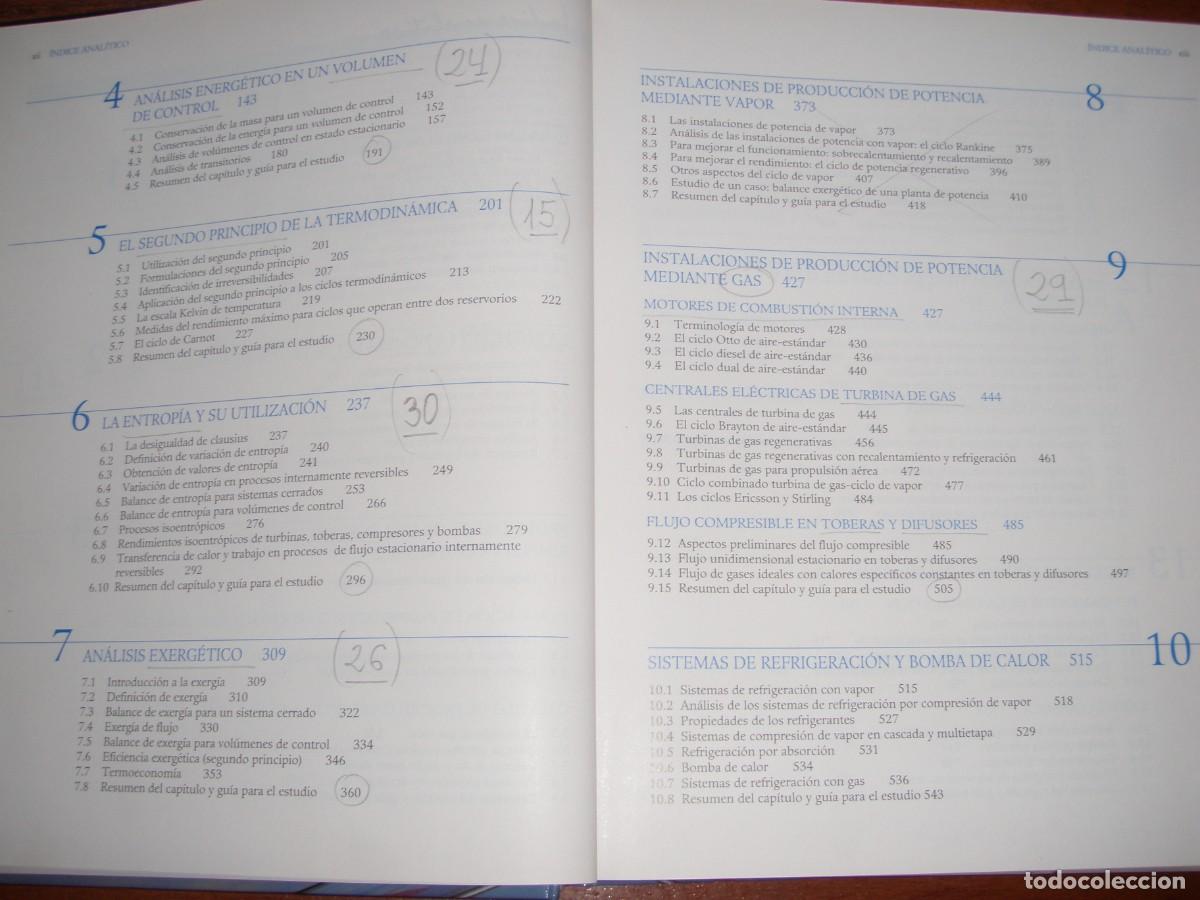 xii ÍNDICE ANALÍTICO
4 ANÁLISIS ENERGÉTICO EN UN VOLUMEN (24)
DE CONTROL 143
4.1 Conservación de la masa para un volumen de control 143
4.2 Conservación de la energía para un volumen de control 152
4.3 Análisis de volúmenes de control en estado estacionario 157
4.4 Análisis de transitorios 180
4.5 Resumen del capítulo y guía para el estudio 191
5 EL SEGUNDO PRINCIPIO DE LA TERMODINÁMICA 201 (15)
5.1 Utilización del segundo principio 201
5.2 Formulaciones del segundo principio 205
5.3 Identificación de irreversibilidades 207
5.4 Aplicación del segundo principio a los ciclos termodinámicos 213
5.5 La escala Kelvin de temperatura 219
5.6 Medidas del rendimiento máximo para ciclos que operan entre dos reservorios 222
5.7 El ciclo de Carnot 227
5.8 Resumen del capítulo y guía para el estudio 230
6 LA ENTROPÍA Y SU UTILIZACIÓN 237 (30)
6.1 La desigualdad de clausius 237
6.2 Definición de variación de entropía 240
6.3 Obtención de valores de entropía 241
6.4 Variación de entropía en procesos internamente reversibles 249
6.5 Balance de entropía para sistemas cerrados 253
6.6 Balance de entropía para volúmenes de control 266
6.7 Procesos isoentrópicos 276
6.8 Rendimientos isoentrópicos de turbinas, toberas, compresores y bombas 279
6.9 Transferencia de calor y trabajo en procesos de flujo estacionario internamente
reversibles 292
6.10 Resumen del capítulo y guía para el estudio 296
7 ANÁLISIS EXERGÉTICO 309 (26)
7.1 Introducción a la exergía 309
7.2 Definición de exergía 310
7.3 Balance de exergía para un sistema cerrado 322
7.4 Exergía de flujo 330
7.5 Balance de exergía para volúmenes de control 334
7.6 Eficiencia exergética (segundo principio) 346
7.7 Termoeconomía 353
7.8 Resumen del capítulo y guía para el estudio 360
ÍNDICE ANALÍTICO xiii
INSTALACIONES DE PRODUCCIÓN DE POTENCIA 8
MEDIANTE VAPOR 373
8.1 Las instalaciones de potencia de vapor 373
8.2 Análisis de las instalaciones de potencia con vapor: el ciclo Rankine 375
8.3 Para mejorar el funcionamiento: sobrecalentamiento y recalentamiento 389
8.4 Para mejorar el rendimiento: el ciclo de potencia regenerativo 396
8.5 Otros aspectos del ciclo de vapor 407
8.6 Estudio de un caso: balance exergético de una planta de potencia 410
8.7 Resumen del capítulo y guía para el estudio 418
INSTALACIONES DE PRODUCCIÓN DE POTENCIA 9
MEDIANTE GAS 427 (29)
MOTORES DE COMBUSTIÓN INTERNA 427
9.1 Terminología de motores 428
9.2 El ciclo Otto de aire-estándar 430
9.3 El ciclo diesel de aire-estándar 436
9.4 El ciclo dual de aire-estándar 440
CENTRALES ELÉCTRICAS DE TURBINA DE GAS 444
9.5 Las centrales de turbina de gas 444
9.6 El ciclo Brayton de aire-estándar 445
9.7 Turbinas de gas regenerativas 456
9.8 Turbinas de gas regenerativas con recalentamiento y refrigeración 461
9.9 Turbinas de gas para propulsión aérea 472
9.10 Ciclo combinado turbina de gas-ciclo de vapor 477
9.11 Los ciclos Ericsson y Stirling 484
FLUJO COMPRESIBLE EN TOBERAS Y DIFUSORES 485
9.12 Aspectos preliminares del flujo compresible 485
9.13 Flujo unidimensional estacionario en toberas y difusores 490
9.14 Flujo de gases ideales con calores específicos constantes en toberas y difusores 497
9.15 Resumen del capítulo y guía para el estudio 505
SISTEMAS DE REFRIGERACIÓN Y BOMBA DE CALOR 515 10
10.1 Sistemas de refrigeración con vapor 515
10.2 Análisis de los sistemas de refrigeración por compresión de vapor 518
10.3 Propiedades de los refrigerantes 527
10.4 Sistemas de compresión de vapor en cascada y multietapa 529
10.5 Refrigeración por absorción 531
10.6 Bomba de calor 534
10.7 Sistemas de refrigeración con gas 536
10.8 Resumen del capítulo y guía para el estudio 543
todocoleccion